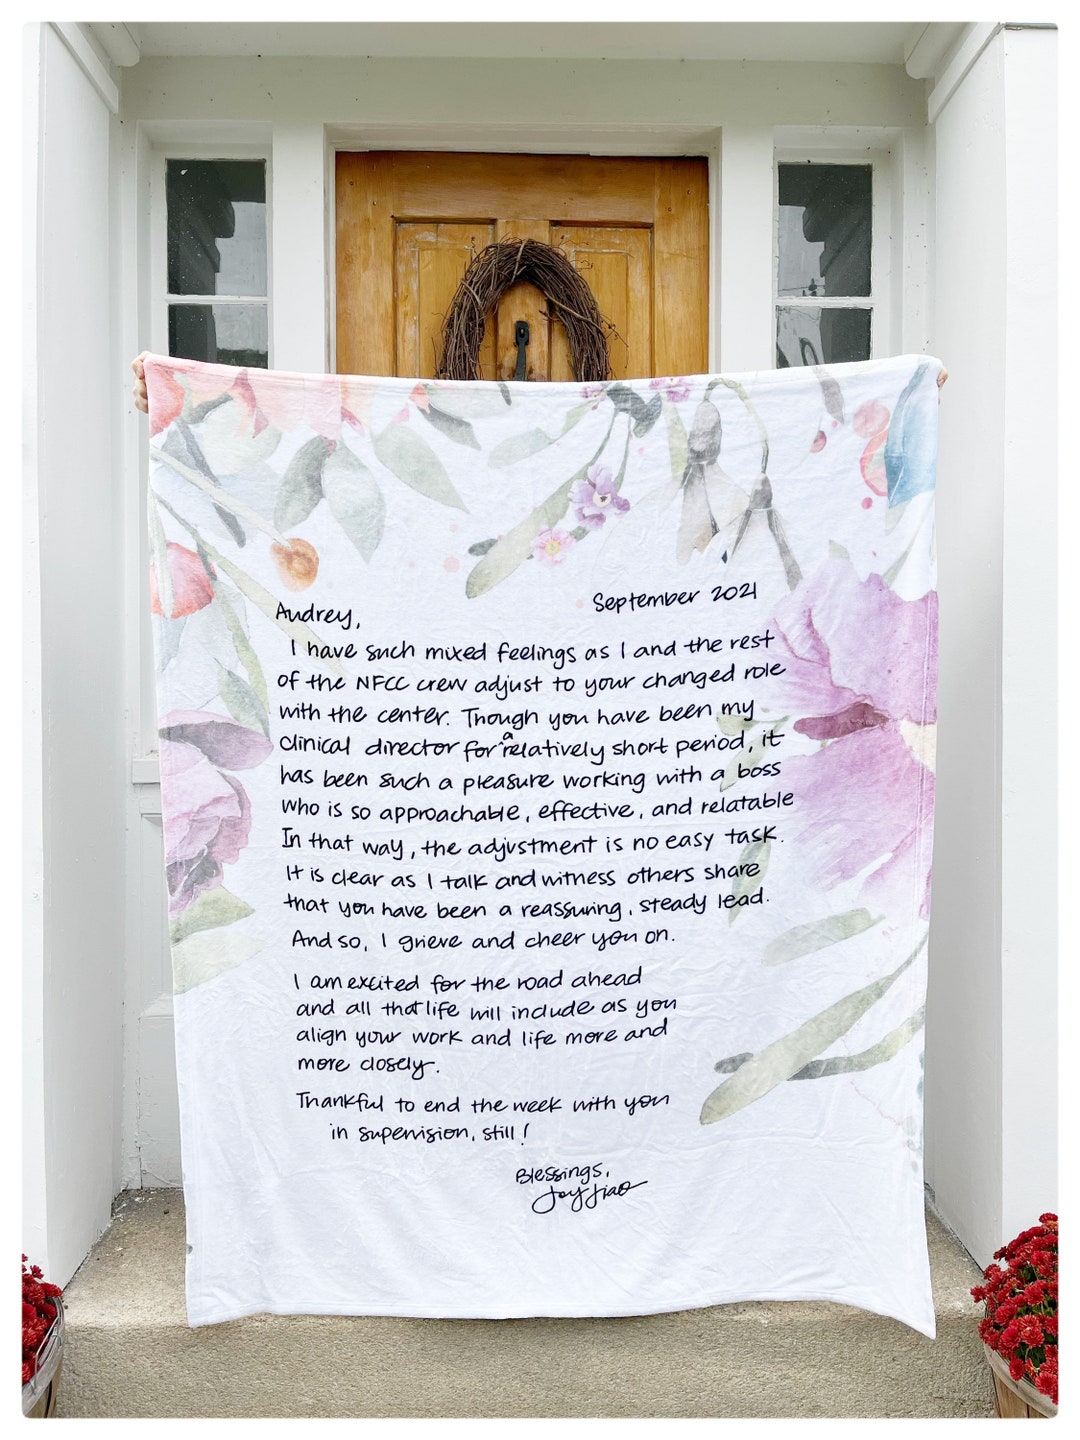 September 2021
Audrey,
I have such mixed feelings as I and the rest
of the NFCC crew adjust to your changed role
with the center. Though you have been my
clinical director for a relatively short period, it
has been such a pleasure working with a boss
who is so approachable, effective, and relatable
In that way, the adjustment is no easy task.
It is clear as I talk and witness others share
that you have been a reassuring, steady lead.
And so, I grieve and cheer you on.
I am excited for the road ahead
and all that life will include as you
align your work and life more and
more closely.
Thankful to end the week with you
in supervision, still!
Blessings,
Joy Jiao